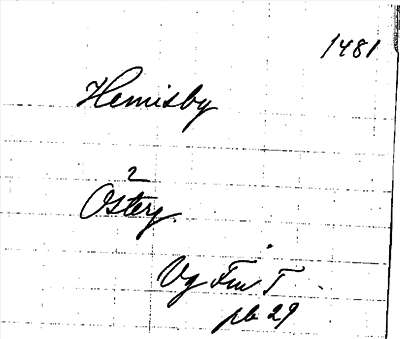 1481
Hemisby
2
Östery.
Vg Fm T
pb 29